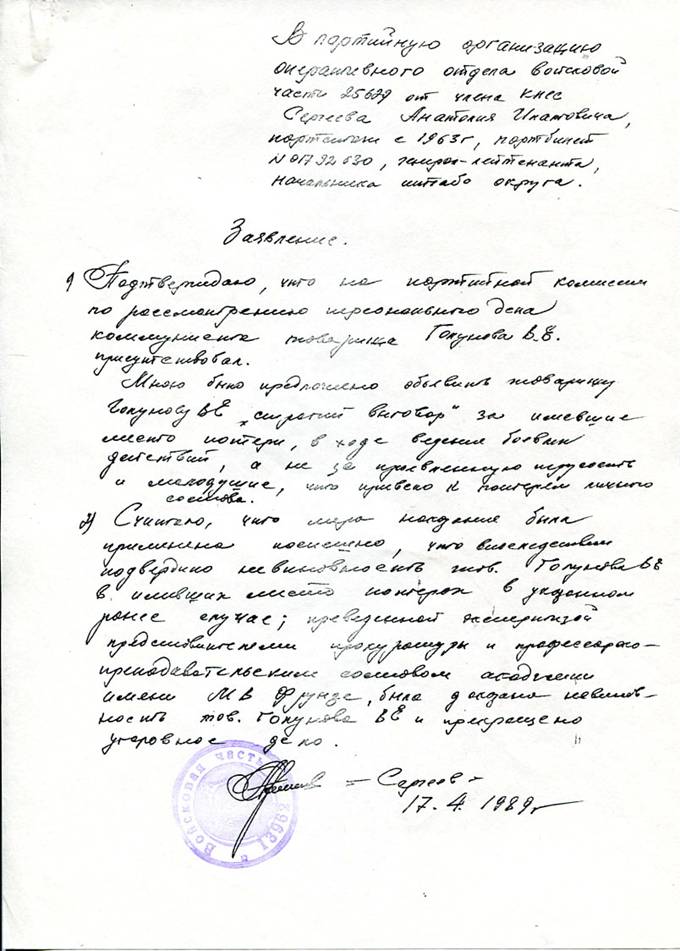 В партийную организацию
оперативного отдела войсковой
части 25699 от члена КПСС
Сергеева Анатолия Ипатовича,
партстаж с 1963г, партбилет
N 01792630, генерал-лейтенанта,
начальника штаба округа.
Заявление.
1) Подтверждаю, что на партийной комиссии
по рассмотрению персонального дела
коммуниста товарища Голунова В.Е.
присутствовал.
Мною было предложено объявить товарищу
Голунову ВЕ „строгий выговор" за имевшие
место потери, в ходе ведения боевых
действий, а не за проявленную трусость
и малодушие, что привело к потерям личного
состава.
2) Считаю, что мера наказания была
применена поспешно, что впоследствии
подвердило невиновность тов. Голунова ВЕ
в имевших место потерях в указанном
ранее случае; проведенной экспертизой
представителями прокуратуры и профессорско-
преподавательским составом академии
имени М В Фрунзе, была доказана невинов-
ность тов. Голунова ВЕ и прекращено
уголовное дело.
- Сергеев -
17.4.1989г
Войсковая часть
13962